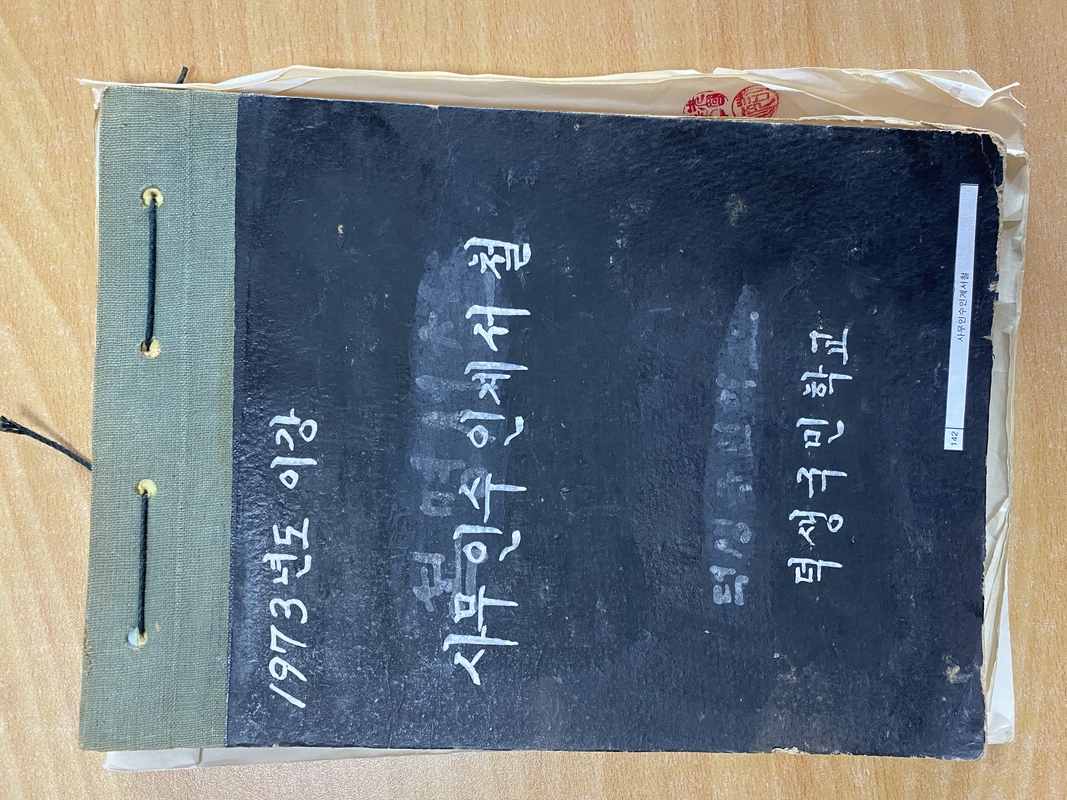 1973년도 이강
사무인수인계서철
덕생국민학교
142 사무인수인계서철